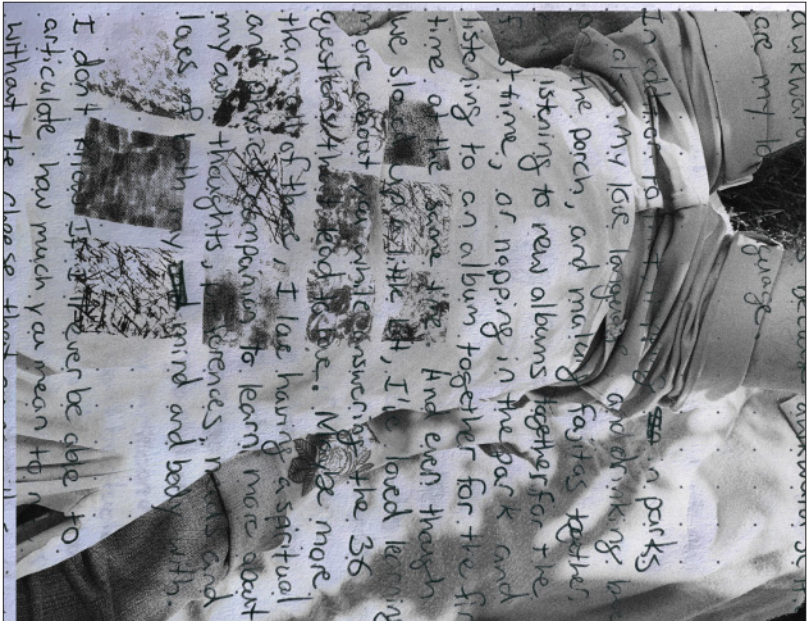 awkward
are my guage
In addition to in parks
my love language and drinking
on the porch, and making fajitas together,
listening to new albums together for the
time, or napping in the park and
listening to an album together for the fir
time at the same time. And even though
we up a little bit, I've loved learning
more about you while answering the 36
questions that lead to love. Maybe more
than all of these, I love having a spiritual
and physical companion to learn more about
my own thoughts, preferences, needs and
loves of both my mind and body with.
I don't know if I'll ever be able to
articulate how much you mean to m
without the cheese that